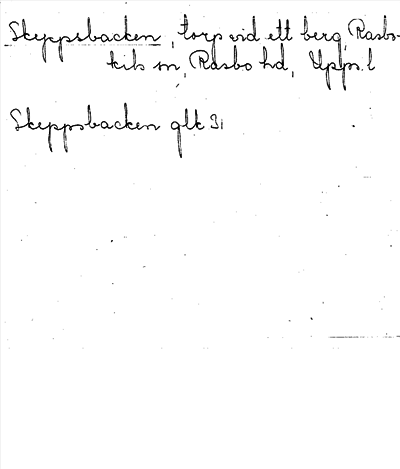 Skeppsbacken, torp vid ett berg, Rasbo-
kils sn, Rasbo hd, Upps. l
Skeppsbacken glk 31